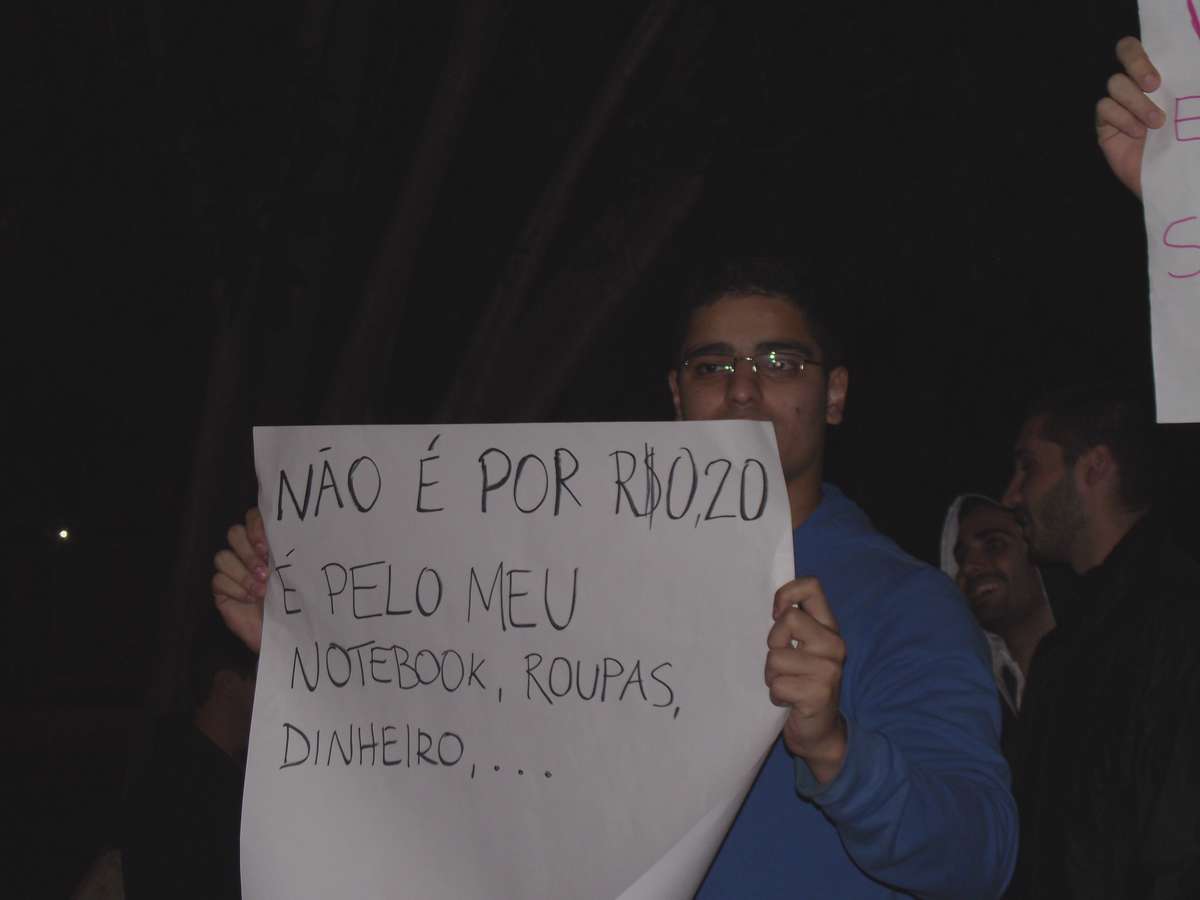 NÃO É POR R$0,20
É PELO MEU
NOTEBOOK, ROUPAS,
DINHEIRO,...
E
S